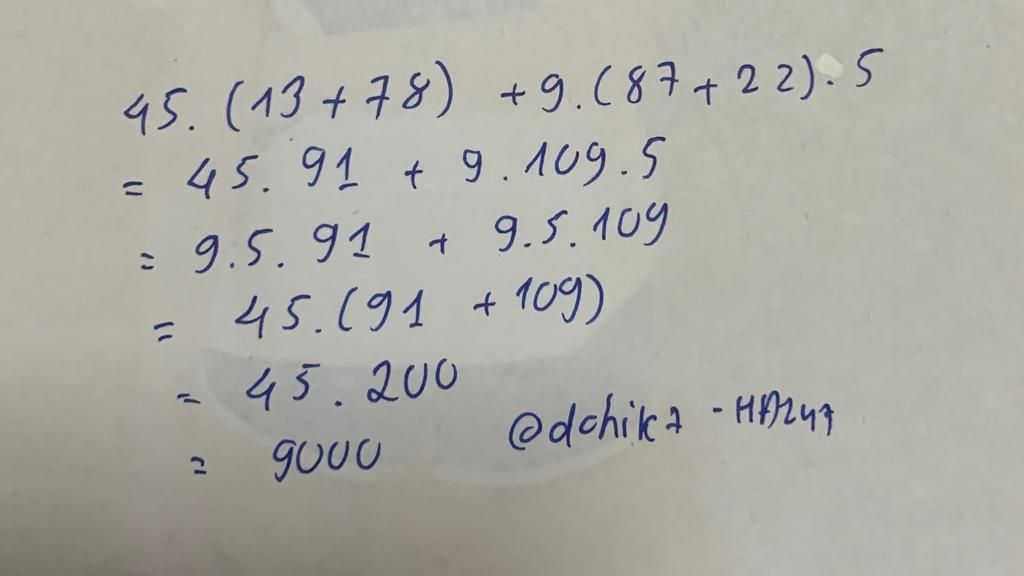 45.(13+78) +9.(87+22).5
= 45.91 + 9.109.5
= 9.5.91 + 9.5.109
= 45.(91 +109)
= 45.200
= 9000
@dchik7 -HD247